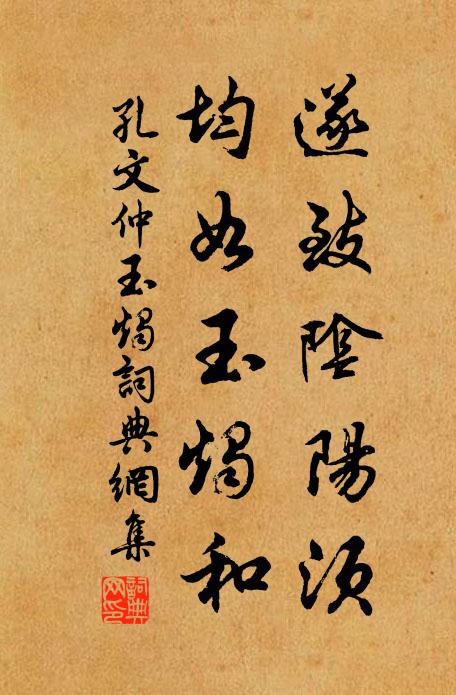 遂致陰陽順
均如玉燭和
孔文仲玉燭詞典網集
詞典網印